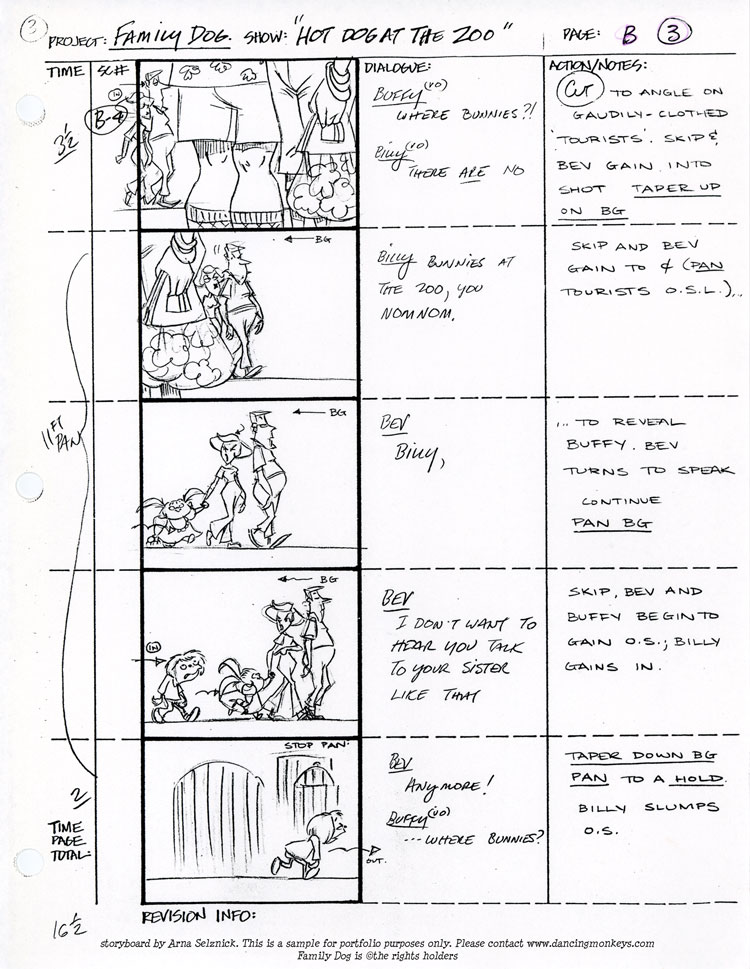 3
PROJECT: FAMILY DOG. SHOW: "HOT DOG AT THE ZOO" PAGE: B 3
TIME SC# DIALOGUE: ACTION/NOTES:
3½
B-4
IN
BUFFY (VO)
WHERE BUNNIES?!
BILLY (VO)
THERE ARE NO
CUT TO ANGLE ON
GAUDILY-CLOTHED
'TOURISTS'. SKIP &
BEV GAIN INTO
SHOT TAPER UP
ON BG
11 FT
PAN
← BG
BILLY BUNNIES AT
THE ZOO, YOU
NOMNOM.
SKIP AND BEV
GAIN TO ₵ (PAN
TOURISTS O.S.L.)...
← BG
BEV
BILLY,
... TO REVEAL
BUFFY. BEV
TURNS TO SPEAK
CONTINUE
PAN BG
← BG
IN
BEV
I DON'T WANT TO
HEAR YOU TALK
TO YOUR SISTER
LIKE THAT
SKIP, BEV AND
BUFFY BEGIN TO
GAIN O.S.; BILLY
GAINS IN.
STOP PAN.
OUT.
BEV
ANYMORE!
BUFFY (VO)
...WHERE BUNNIES?
TAPER DOWN BG
PAN TO A HOLD.
BILLY SLUMPS
O.S.
2
TIME
PAGE
TOTAL:
16½
REVISION INFO:
storyboard by Arna Selznick. This is a sample for portfolio purposes only. Please contact www.dancingmonkeys.com
Family Dog is ©the rights holders